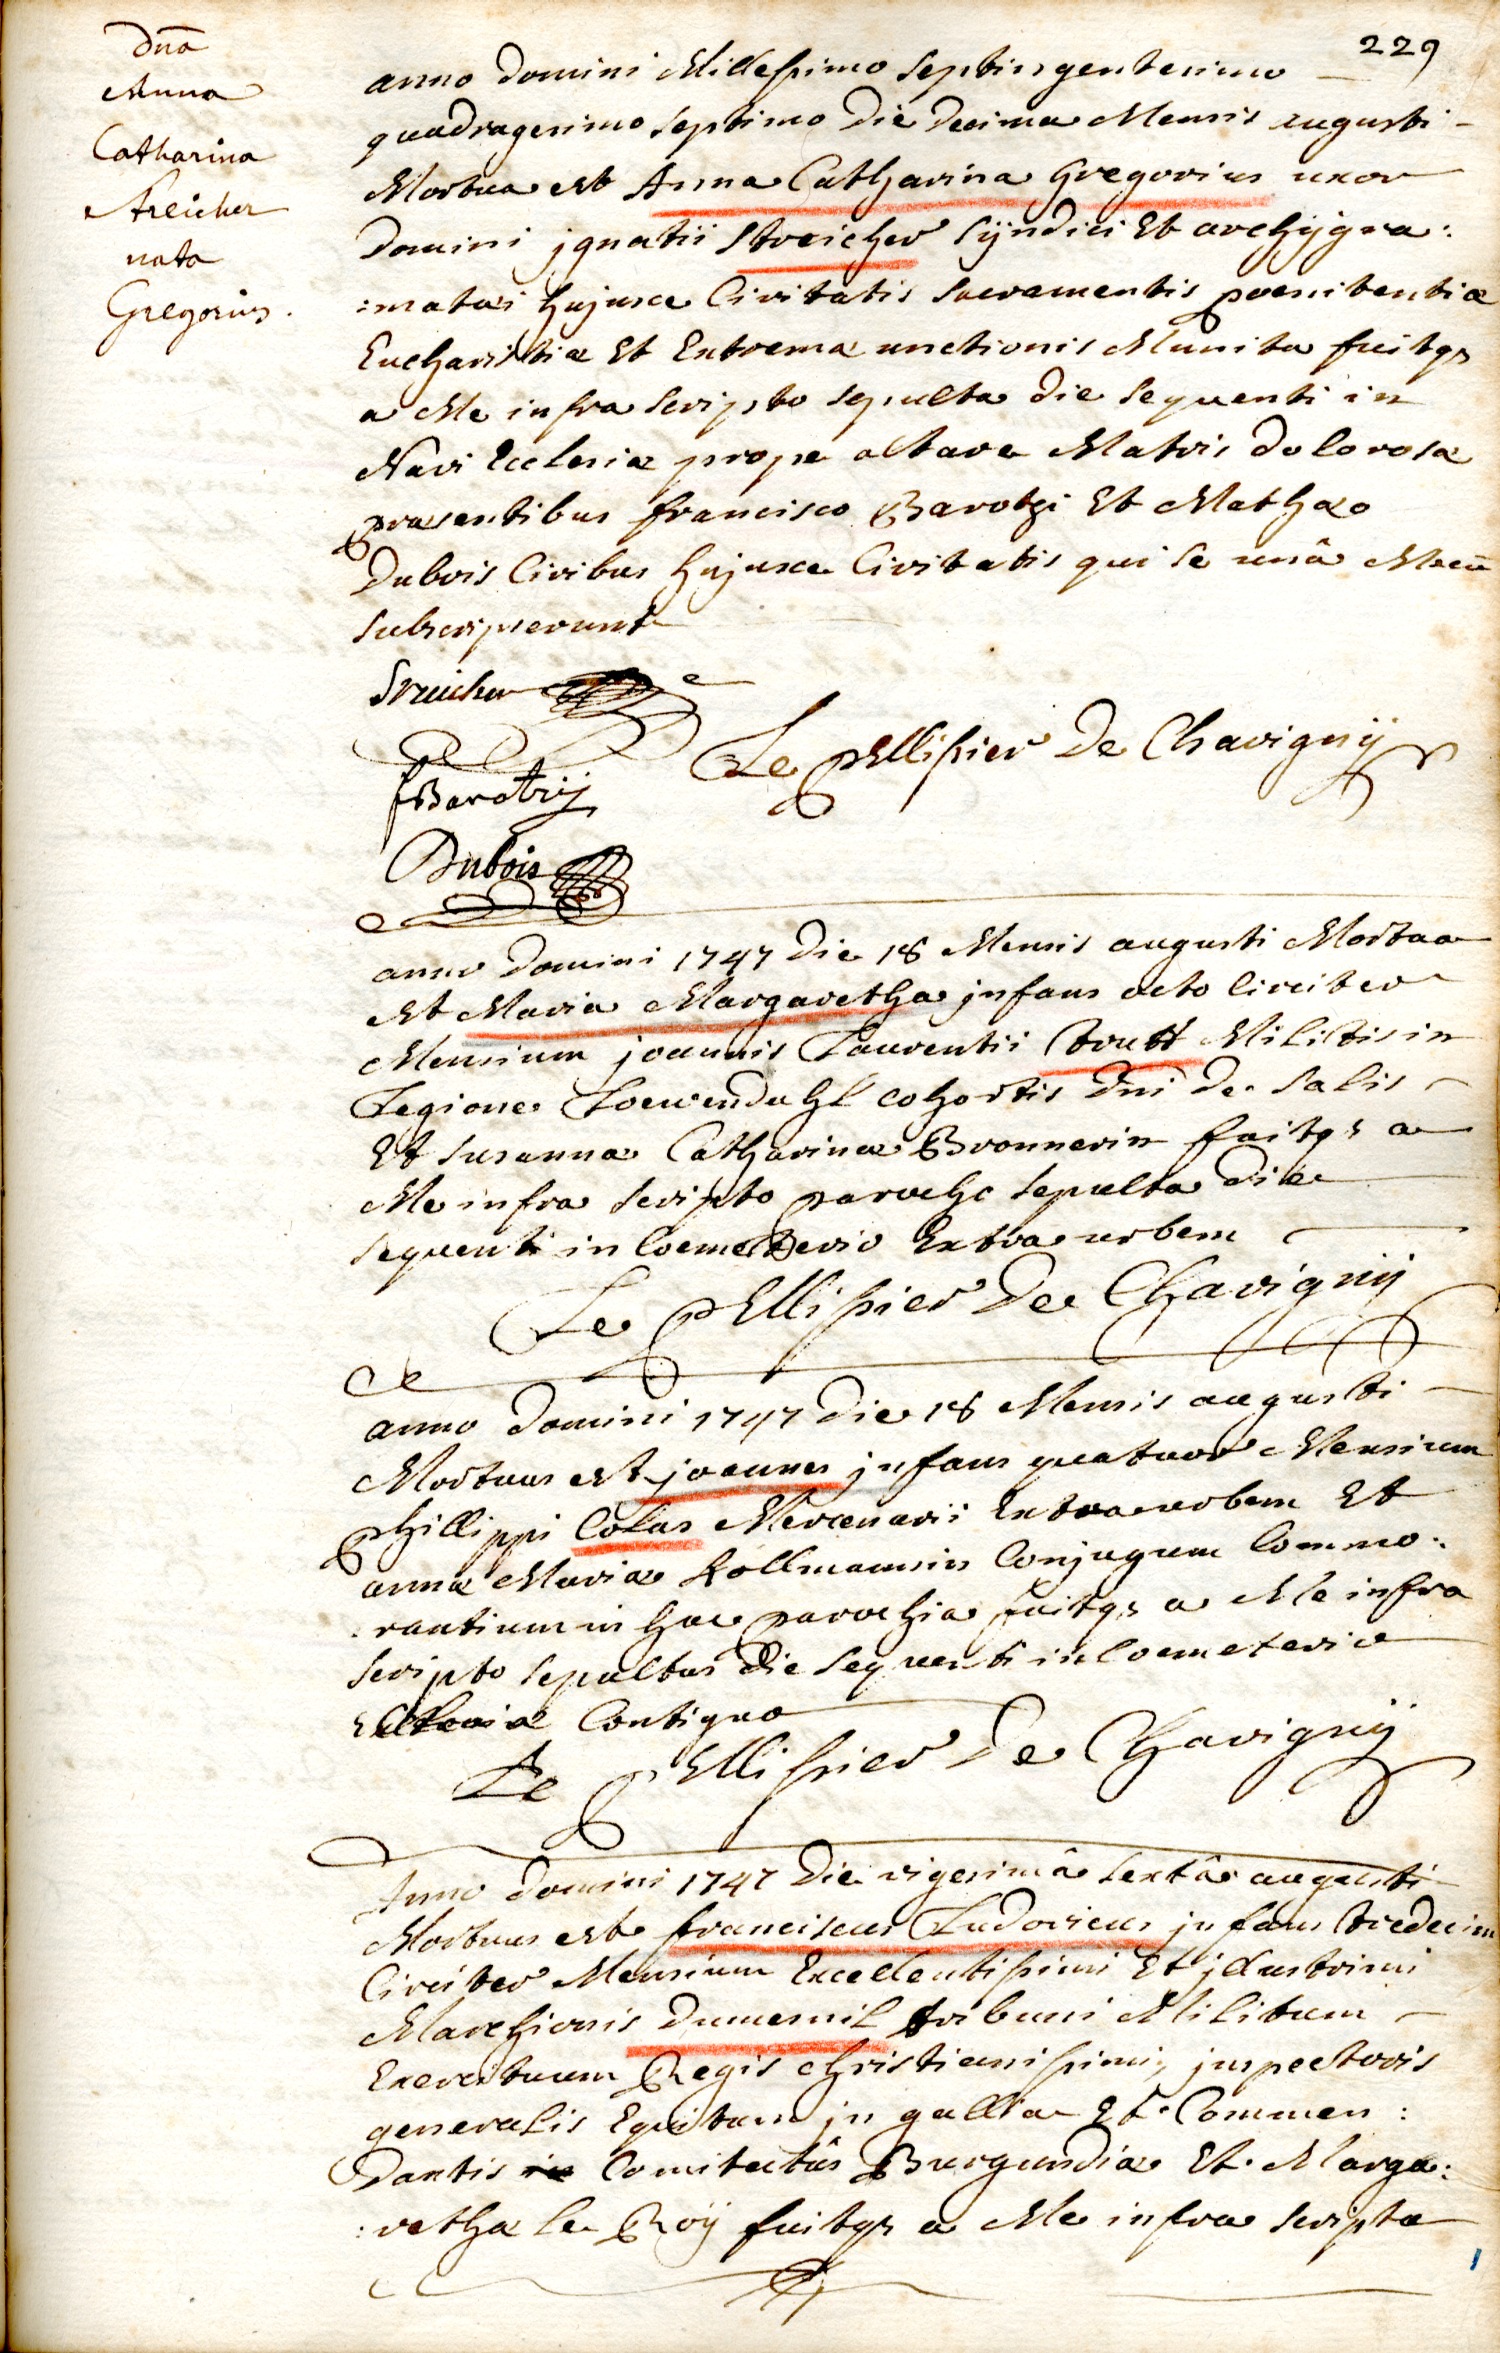 229
Dña
Anna
Catharina
Streicher
nata
Gregorius.
anno Domini Millessimo septingentesimo —
quadragesimo septimo Die Decima Mensis augusti -
Mortua est Anna Catharina Gregorius uxor
Domini jgnatii Streicher Sÿndici Et archÿgra:
:matæi hujusce Civitatis sacramentis pœnitentiæ
Eucharistiæ Et Extremæ unctionis Munita fuitqs
a Me infra scripto sepulta die sequenti in
Navi Ecclesiæ prope altare Matris dolorosæ
præsentibus francisco Barotzi Et Mathæo
Dubois Civibus hujusce Civitatis qui se unâ Mecū
subscripserunt
Streicher
Le pEllissier De Chavignÿ
fBarotzij
Dubois
anno Domini 1747 Die 18 Mensis augusti Mortua
est Maria Margaretha jnfans octo Circiter
Mensium joannis Laurentii trutt Militis in
Legione Loewendahl cohortis Dni De Salis
Et susanna Catharina Bronnerin fuitqs a
Me infra scripto parocho sepulta die
sequenti in Coemeterio Extra urbem
Le pEllissier De Chavignÿ
anno Domini 1747 Die 18 Mensis augusti -
Mortuus est joannes jnfans quatuor Mensium
phillippi Colas Mercenarii Extra urbem Et
anna Maria Kollmannin Conjugum Commo:
:rantium in hac parochia fuitqs a Me infra
scripto sepultus die sequenti in Coemeterio
Ecclesiæ Contiguo
Le pEllissier De Chavignÿ
Anno Domini 1747 Die vigesimâ sextâ augusti
Mortuus est franciscus Ludovicus jnfans tredecim
Circiter Mensium Excellentissimi Et jllustrimi
Marchionis Dumesnil tribuni Militum
Exercituum Regis christianissimi, jnspectoris
generalis Equitum jn gallia Et Commen:
Dantis Comitatûs Burgundiæ Et Marga:
:retha le Roÿ fuitqs a Me infra scripto